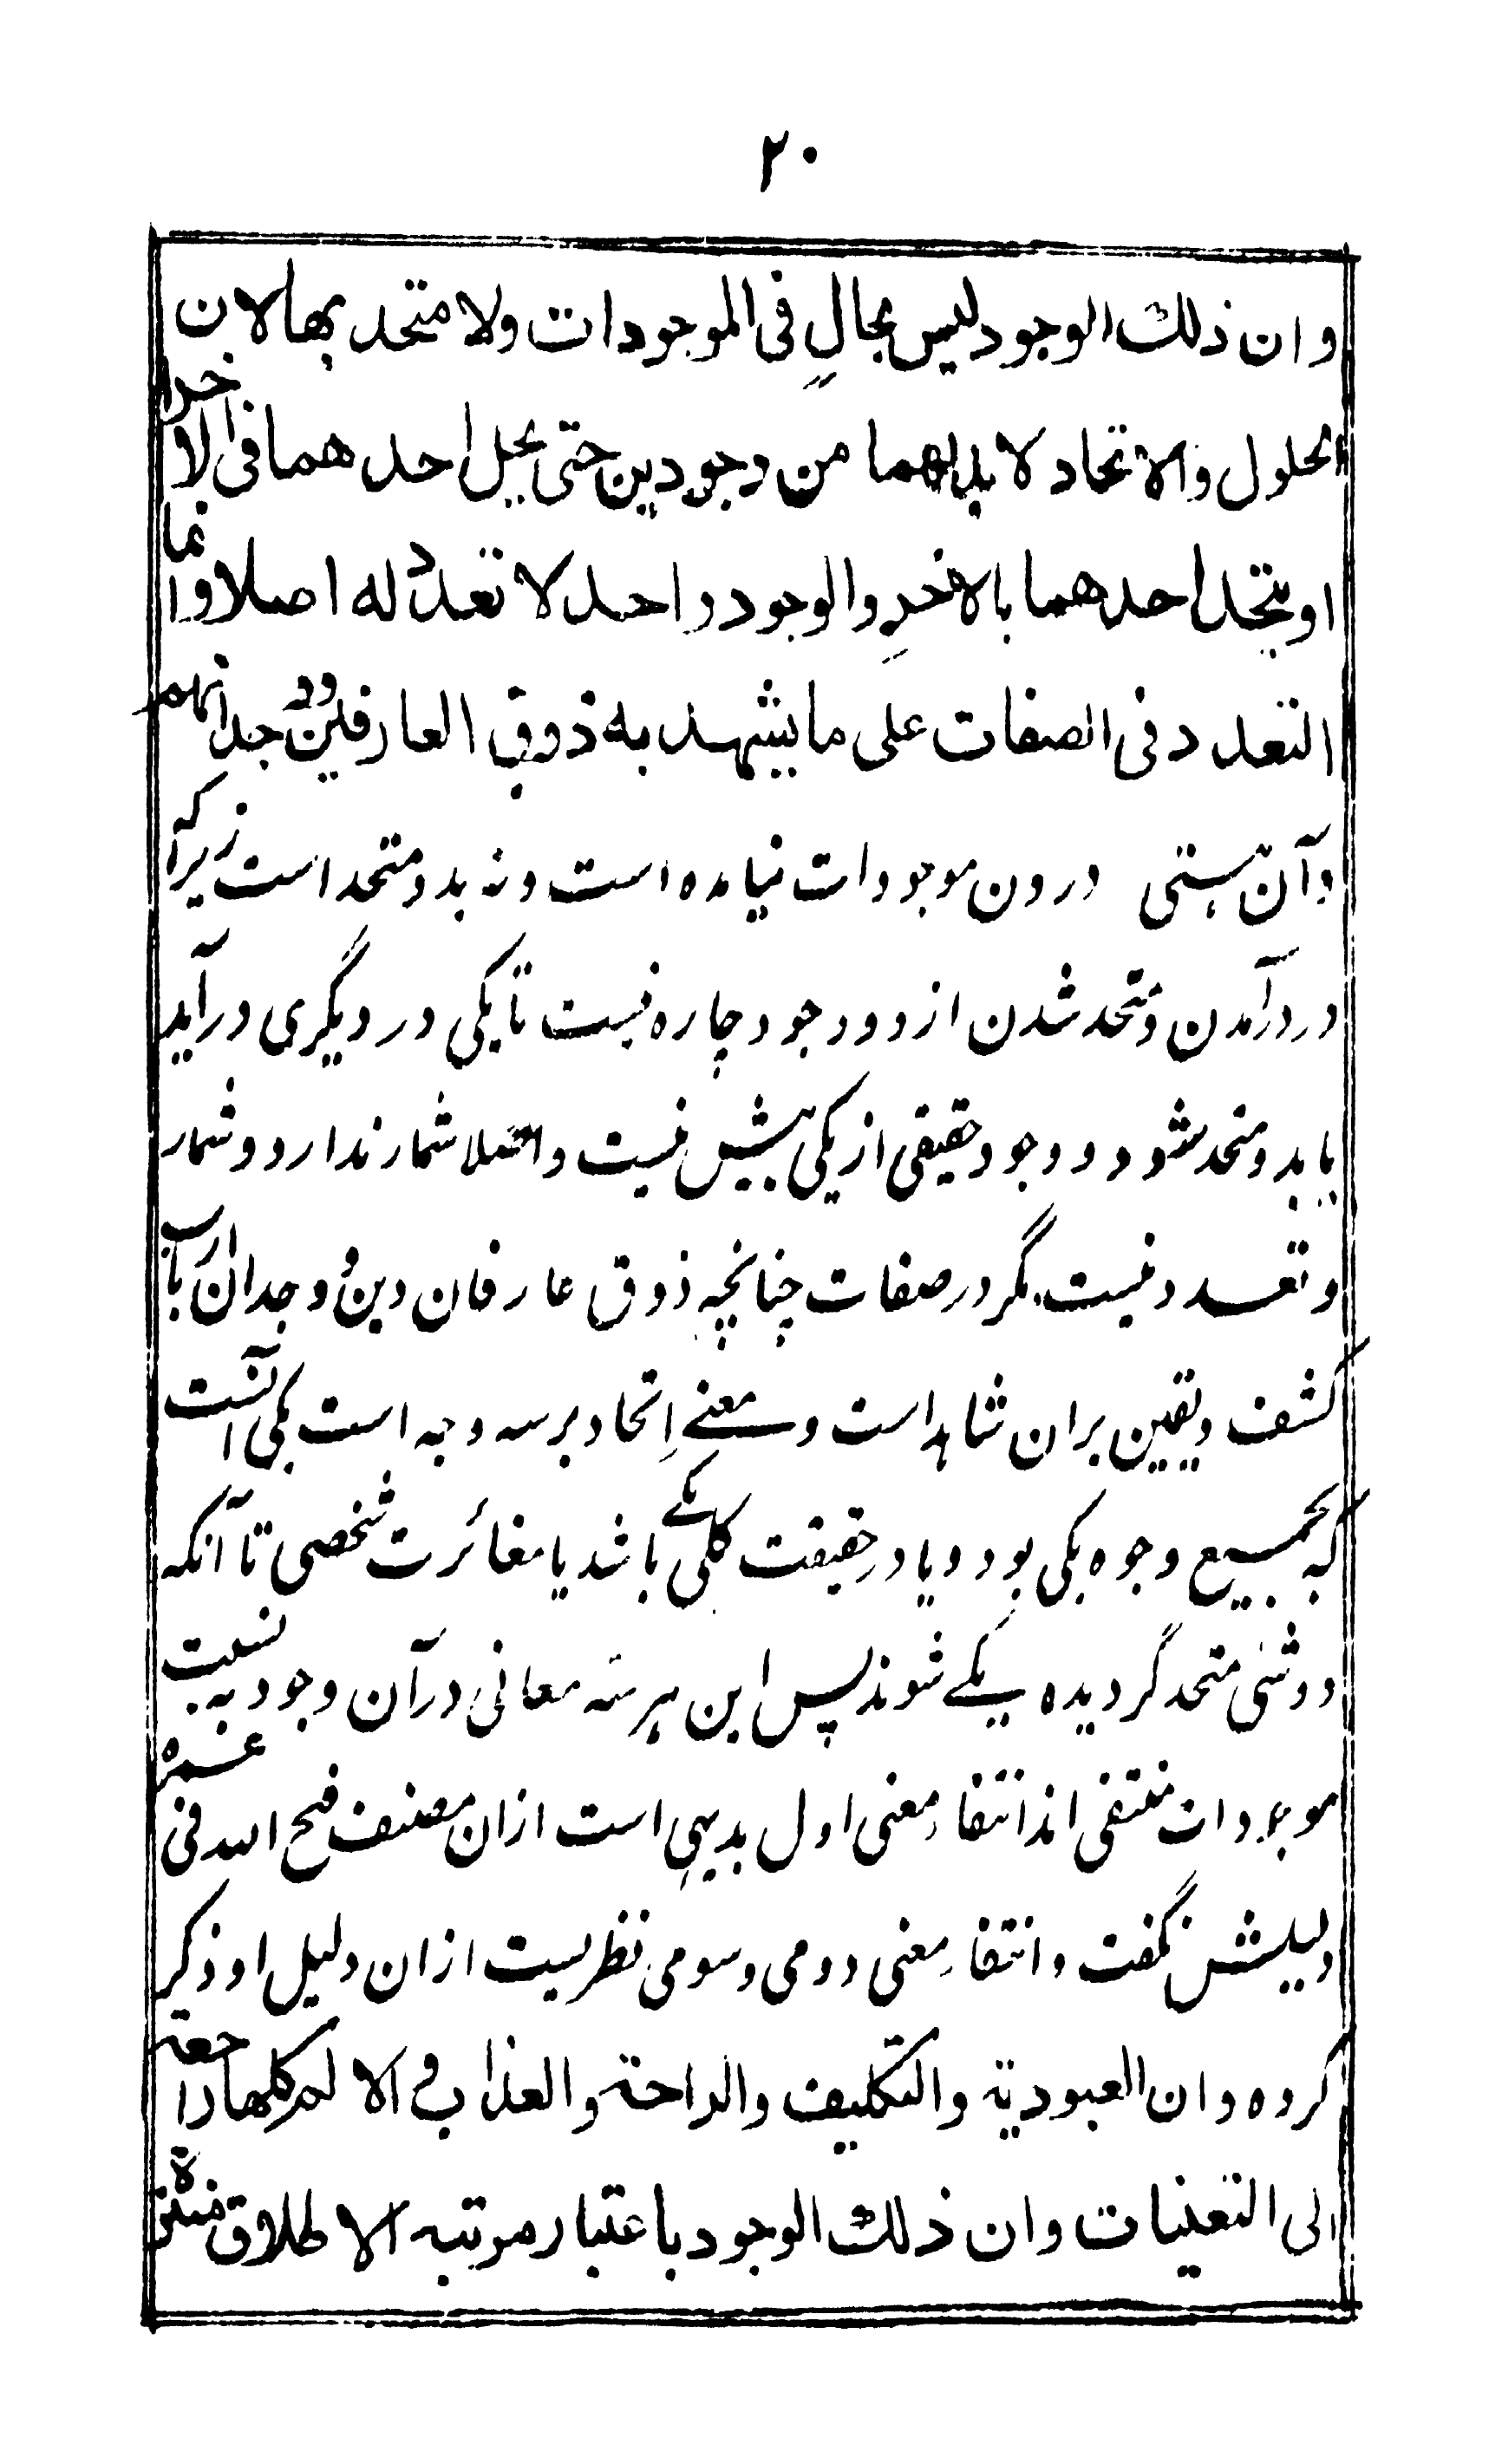 ۲۰
و ان ذلك الوجود ليس بحالٍ فى الموجودات ولا متحد بها لان
الحلول والاتحاد لا بد لهما من وجودين حتى يحل احدهما فى الاخر
او يتحد احدهما بالاخرِ والوجود واحد لا تعدد له اصلا وانما
التعدد فى الصفات على ما يشهد به ذوق العارفين و وجدانهم
وآن ہستی درون موجودات نیامده است ونہ بدو متحد است زیراکہ
در درآمدن ومتحد شدن از دو وجود چاره نیست تا یکی در دیگری درآید
یا بدو متحد شود و وجود حقیقی از یکی بیش نیست واصلا شمار ندارد وشمار
وتعدد نیست مگر در صفات چنانچہ ذوق عارفان دین و وجدان ارباب
کشف ویقین بران شاہد است ومعنے اِتحاد برسہ وجہ است یکی آنست
کہ بجمیع وجوه یکی بود ویا در حقیقت کلی یکے باشد یا مغائرت شخصی تا آنکہ
دو شئی متحد گردیده یکے شوند پس این ہر سہ معانی در آن وجود بہ نسبت
موجودات منتفی اند انتفاء معنی اول بدیہی است ازان مصنف فسح الله فی عمره
دلیلش نگفت وانتفاء معنی دومی وسومی نظریست ازان دلیل او ذکر
کرده وان العبودية والتكليف والراحة والعذاب و الالم كلها راجعة
الى التعينات وان ذلك الوجود باعتبار مرتبه الاطلاق منزه